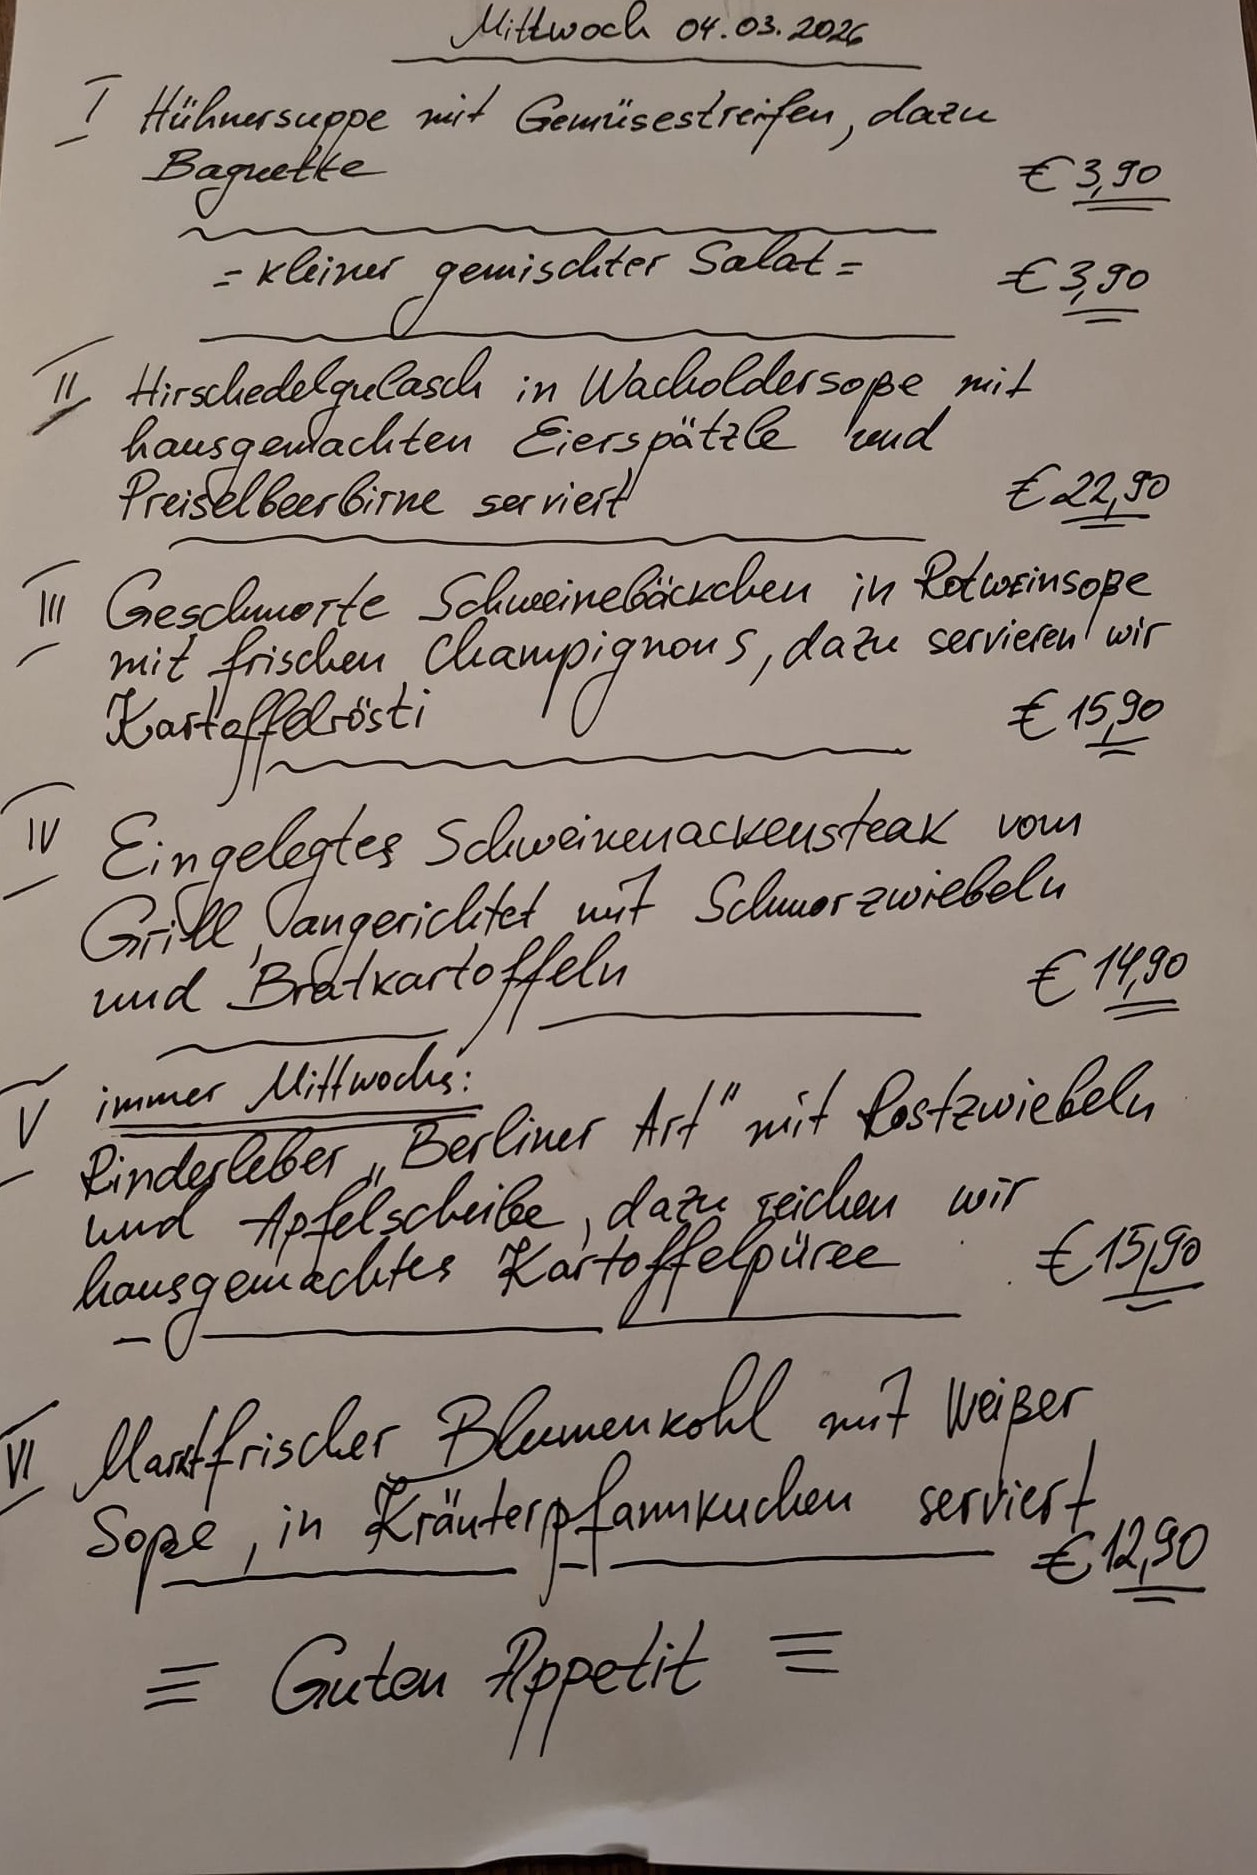 Mittwoch 04.03.2026
I Hühnersuppe mit Gemüsestreifen, dazu
Baguette € 3,90
= kleiner gemischter Salat = € 3,90
II Hirschedelgulasch in Wacholdersoße mit
hausgemachten Eierspätzle und
Preiselbeerbirne serviert € 22,90
III Geschmorte Schweinebäckchen in Rotweinsoße
mit frischen Champignons, dazu servieren wir
Kartoffelrösti € 15,90
IV Eingelegtes Schweinenackensteak vom
Grill, angerichtet mit Schmorzwiebeln
und Bratkartoffeln € 14,90
V immer Mittwochs:
Rinderleber „Berliner Art" mit Röstzwiebeln
und Apfelscheibe, dazu reichen wir
hausgemachtes Kartoffelpüree € 15,90
VI Marktfrischer Blumenkohl mit Weißer
Soße, in Kräuterpfannkuchen serviert
€ 12,90
≡ Guten Appetit ≡